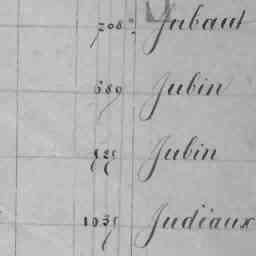 708 Jubaut
689 Jubin
525 Jubin
1035 Judéaux